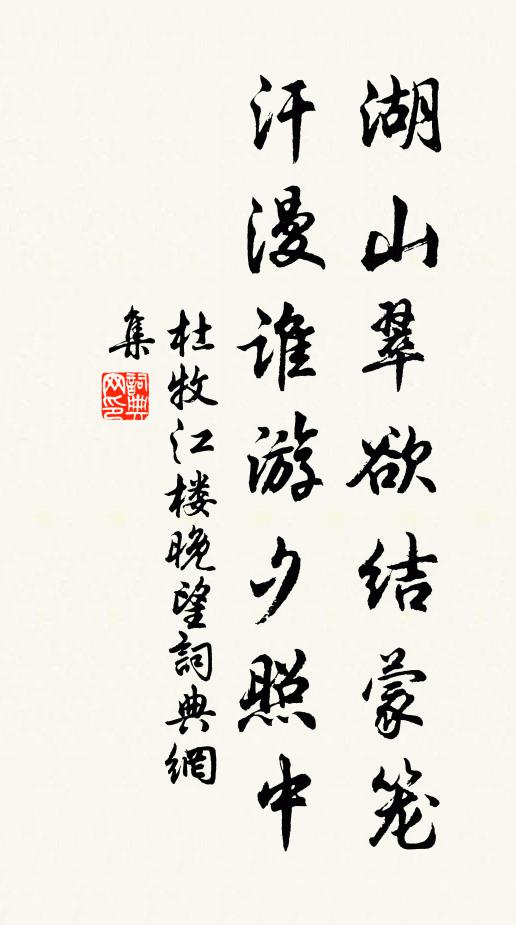 湖山翠欲结蒙笼
汗漫谁游夕照中
杜牧江楼晚望詞典網
集
詞典网印